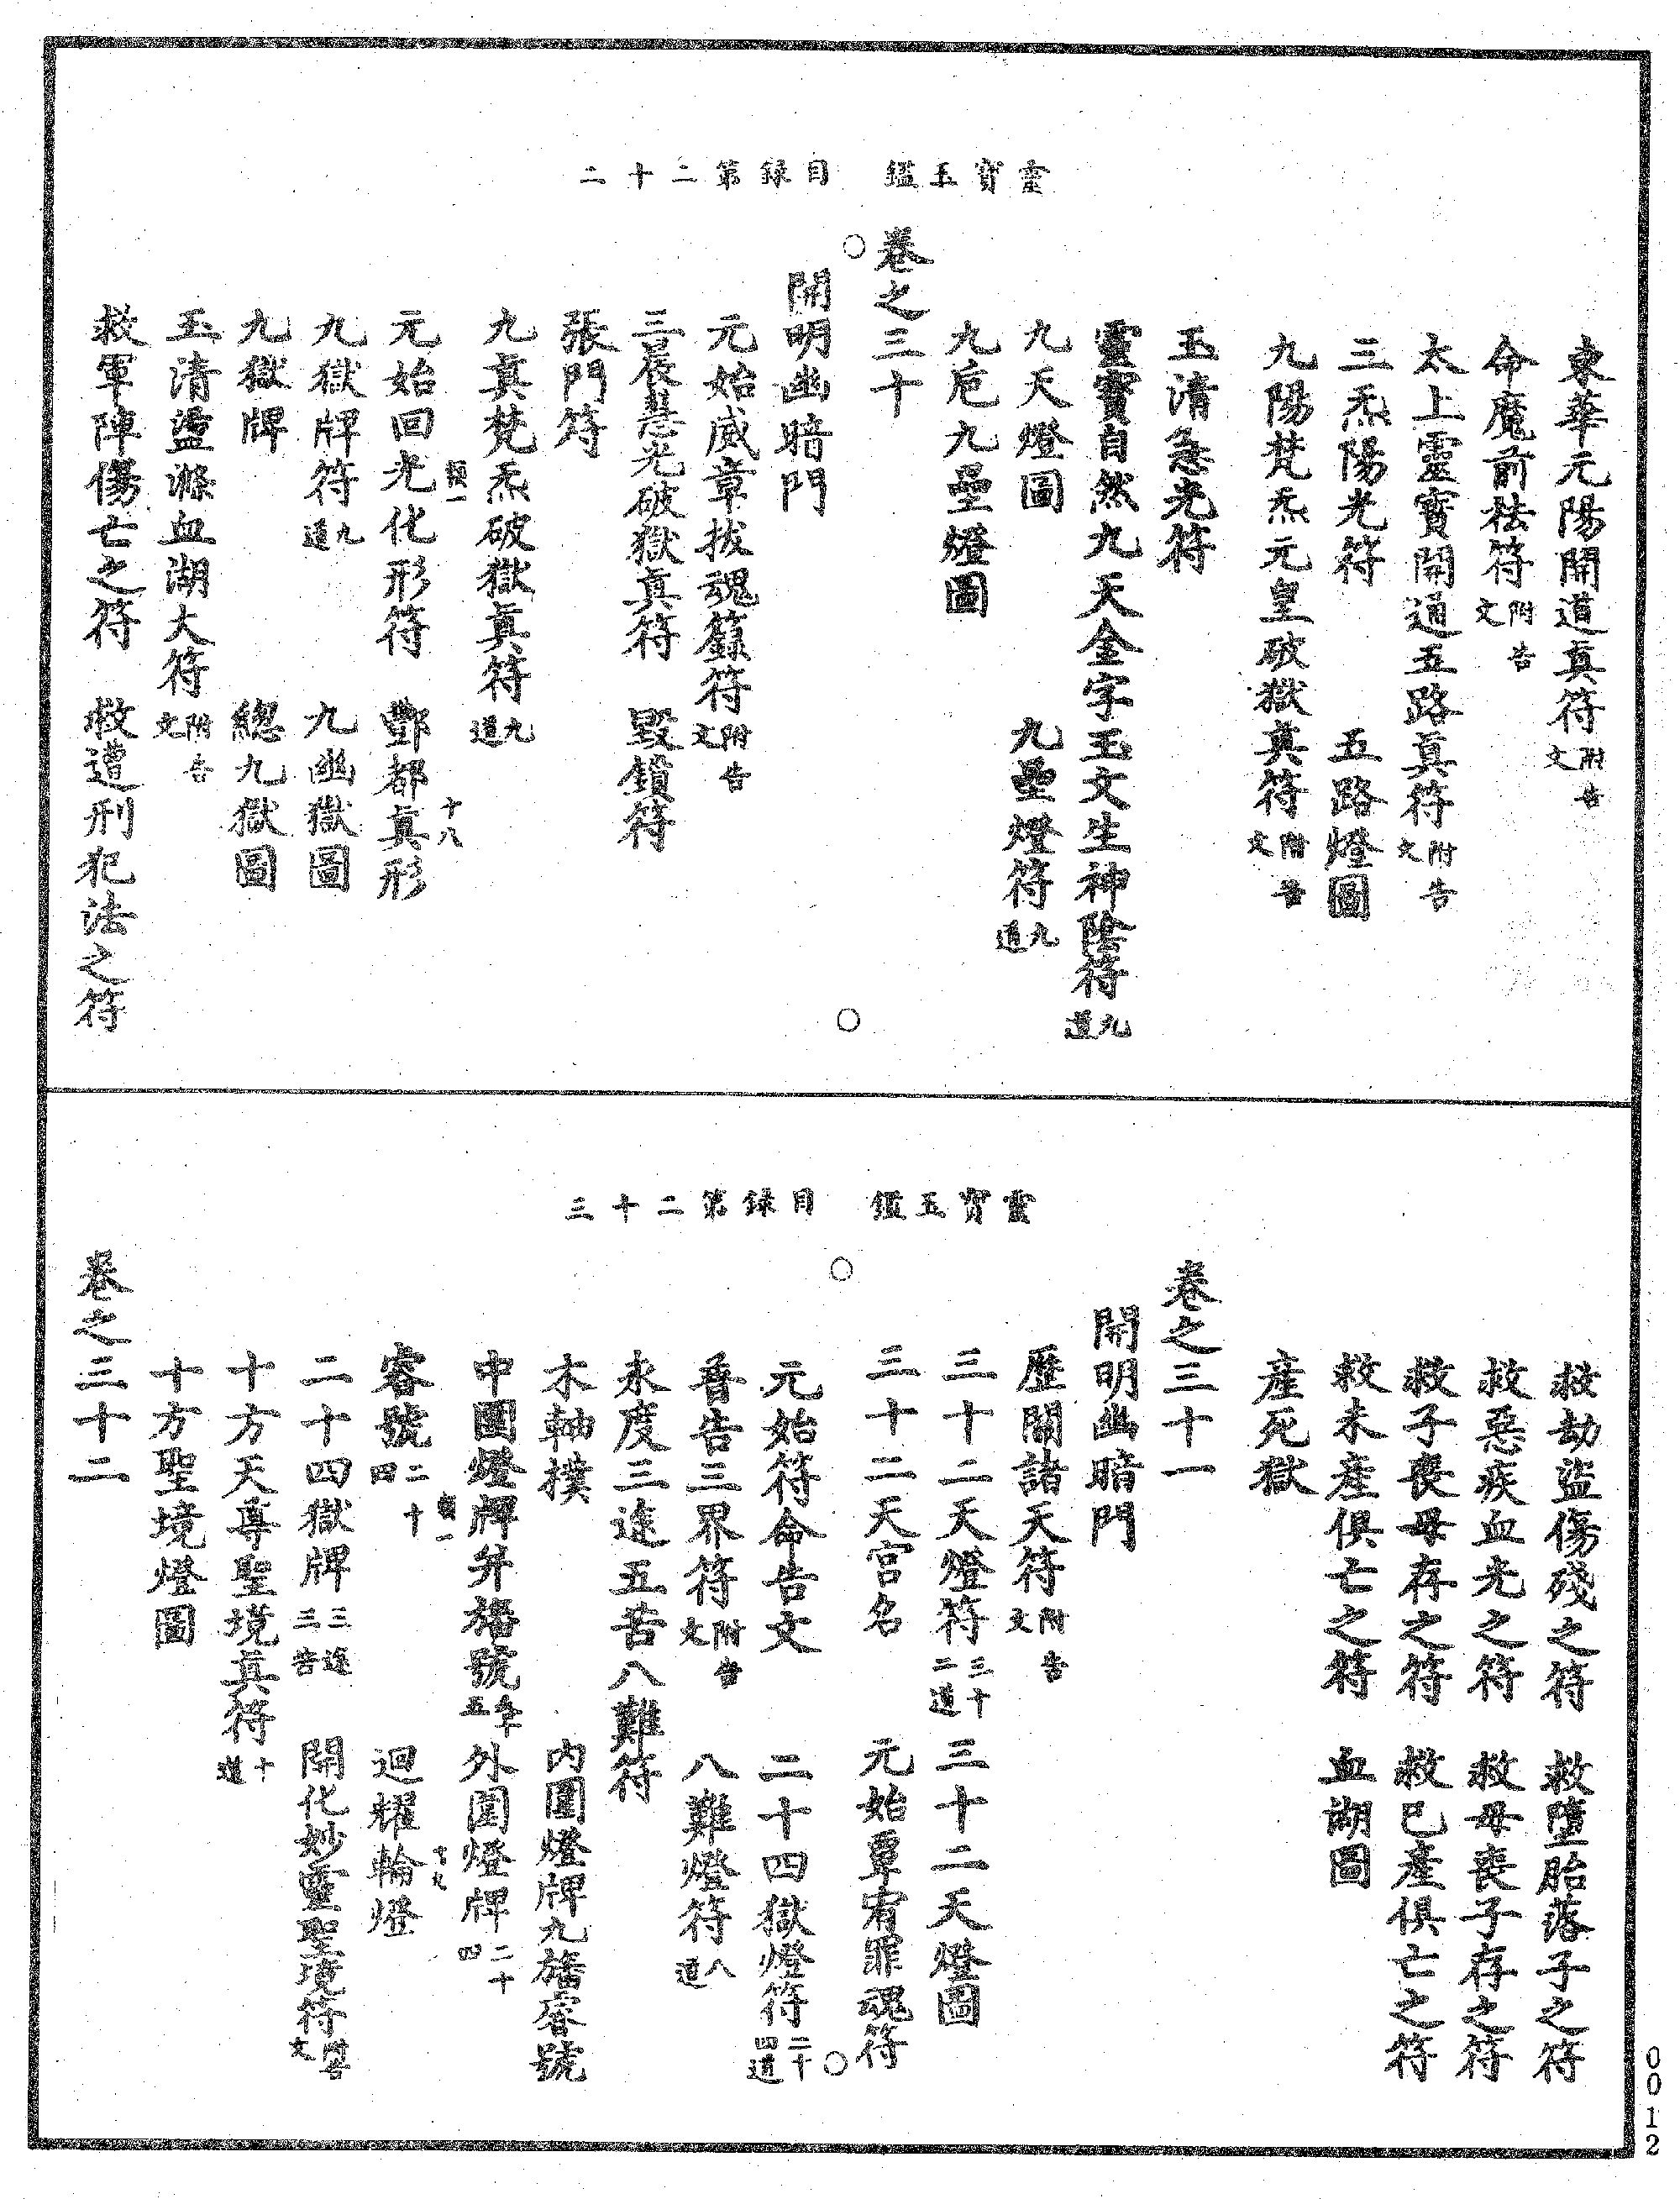 靈寶玉鑑　目錄第二十二
東華元陽開道真符附告文
命魔前祛符附告文
太上靈寶開通五路真符附告文
三炁陽光符　五路燈圖
九陽梵炁元皇破獄真符附告文
玉清慧光符
靈寶自然九天金字玉文生神陰符九道
九天燈圖　九壘燈符九道
九巵九壘燈圖
卷之三十
開明幽暗門
元始威章拔魂籙符附告文
三晨慧光破獄真符　毀鎖符
張門符
九真梵炁破獄真符九道
元始回光化形符　酆都真形
九獄牌符九道　九幽獄圖
九獄牌　總九獄圖
玉清盪滌血湖大符附告文
救軍陣傷亡之符　救遭刑犯法之符
十八
靈寶玉鑑　目錄第二十三
救劫盜傷殘之符　救墮胎落子之符
救惡疾血光之符　救母喪子存之符
救子喪母存之符　救已產俱亡之符
救未產俱亡之符　血湖圖
產死獄
卷之三十一
開明幽暗門
歷關諸天符附告文
三十二天燈符三十二道　三十二天燈圖
三十二天宮名　元始覃宥罪魂符
元始符命告文　二十四獄燈符二十四道
普告三界符附告文　八難燈符八道
永度三途五苦八難符
木軸撲　內圍燈牌九旛睿號
中圍燈牌并旛號　外圍燈牌二十四
睿號二十四　迴耀輪燈
二十四獄牌三途三告　開化妙靈聖境符附告文
十方天尊聖境真符十道
十方聖境燈圖
卷之三十二
0012